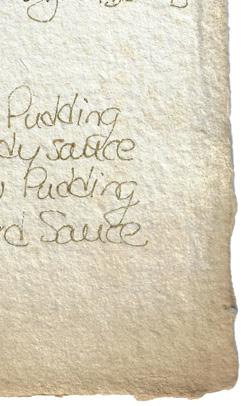 Pudding
dy sauce
Pudding
rd Sauce